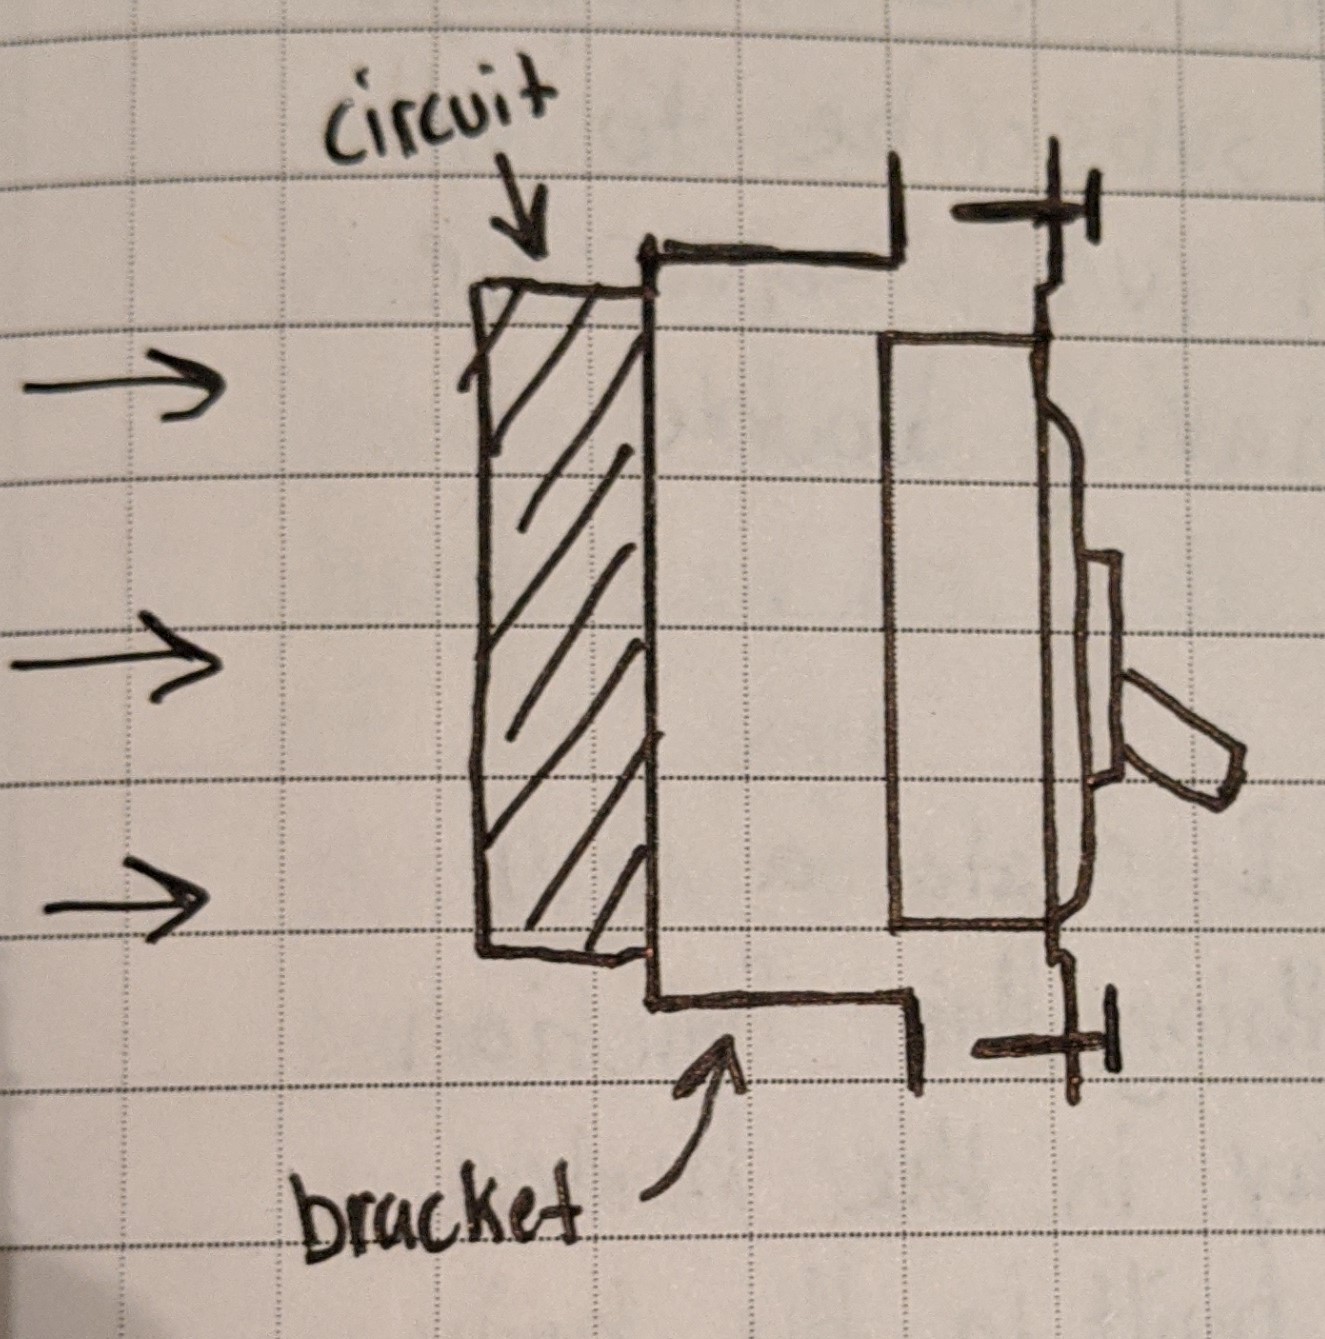 circuit
bracket